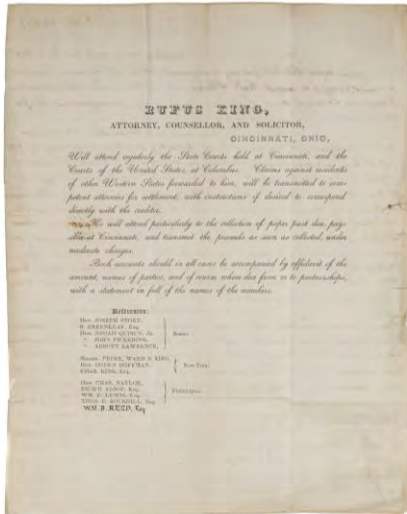 RUFUS KING,
ATTORNEY, COUNSELLOR, AND SOLICITOR,
CINCINNATI, OHIO,
Will attend regularly the State Courts held at Cincinnati, and the
Courts of the United States, at Columbus. Claims against residents
of other Western States forwarded to him, will be transmitted to com-
petent attornies for settlement, with instructions if desired to correspond
directly with the creditor.
He will attend particularly to the collection of paper past due, pay-
able at Cincinnati, and transmit the proceeds as soon as collected, under
moderate charges.
Book accounts should in all cases be accompanied by affidavit of the
amount, names of parties, and of course where due from or to partnerships,
with a statement in full of the names of the members.
References:
Hon. JOSEPH STORY,
S. GREENLEAF, Esq.
Hon. JOSIAH QUINCY, Jr.
" JOHN PICKERING,
" ABBOTT LAWRENCE,
Boston
Messrs. PRIME, WARD & KING,
Hon. OGDEN HOFFMAN,
CHAS. KING, Esq.
New-York
Hon. CHAS. NAYLOR,
RICH'D ALSOP, Esq.
WM. D. LEWIS, Esq.
THOS. C. ROCKHILL, Esq.
Philadelphia
WM. B. REED, Esq